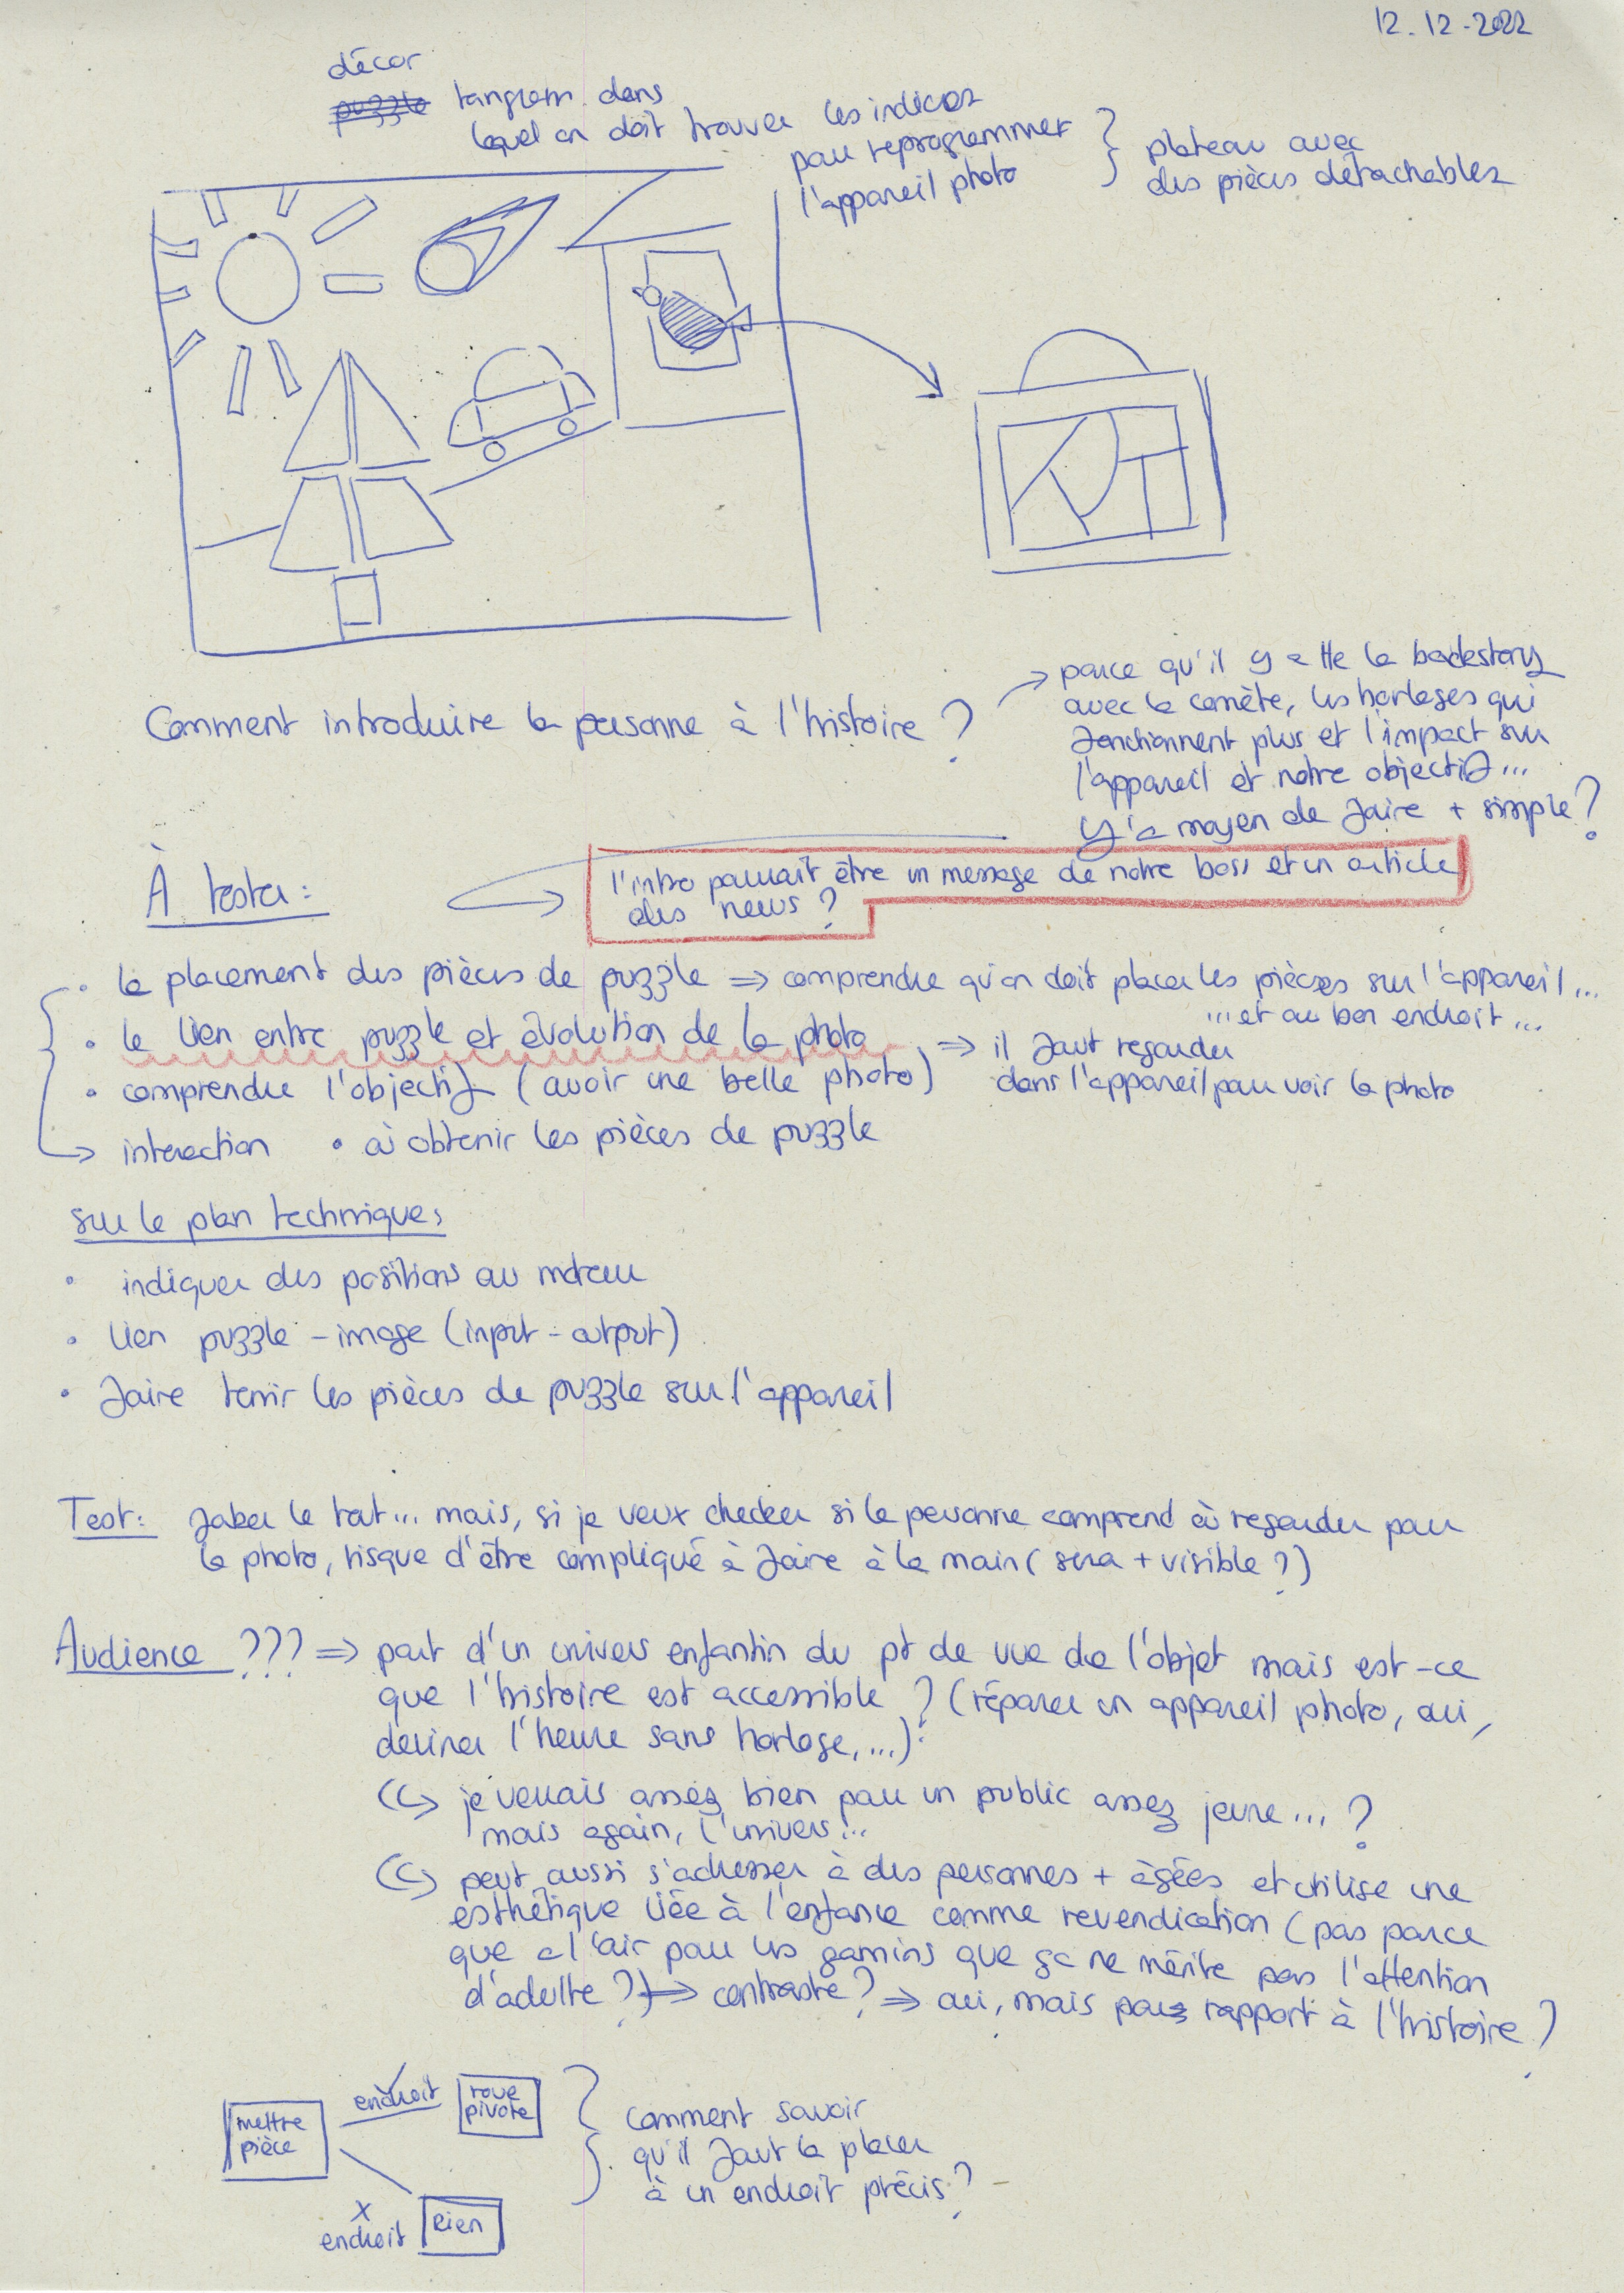 12.12.2022
décor
puzzle tangram dans
lequel on doit trouver les indices
pour reprogrammer
l'appareil photo
plateau avec
des pièces détachables
Comment introduire la personne à l'histoire ?
→ parce qu'il y a tte la backstory
avec la comète, les horloges qui
fonctionnent plus et l'impact sur
l'appareil et notre objectif...
Y'a moyen de faire + simple ?
À tester :
l'intro pourrait être un message de notre boss et un article
des news ?
• le placement des pièces de puzzle ⇒ comprendre qu'on doit placer les pièces sur l'appareil...
...et au bon endroit...
• le lien entre puzzle et évolution de la photo
⇒ il faut regarder
dans l'appareil pour voir la photo
• comprendre l'objectif (avoir une belle photo)
→ interaction • où obtenir les pièces de puzzle
sur le plan technique :
• indiquer des positions au moteur
• lien puzzle - image (input - output)
• faire tenir les pièces de puzzle sur l'appareil
Test : faker le tout... mais, si je veux checker si la personne comprend où regarder pour
la photo, risque d'être compliqué à faire à la main (sera + visible ?)
Audience ??? ⇒ part d'un univers enfantin du pt de vue de l'objet mais est-ce
que l'histoire est accessible ? (réparer un appareil photo, oui,
deviner l'heure sans horloge,...)
(↳ je verrais assez bien pour un public assez jeune... ?
mais again, l'univers...
(↳ peut aussi s'adresser à des personnes + âgées et utilise une
esthétique liée à l'enfance comme revendication (pas parce
que a l'air pour les gamins que ça ne mérite pas l'attention
d'adulte ?) ⇒ contraste ? ⇒ oui, mais par rapport à l'histoire ?
mettre
pièce
✓
endroit
roue
pivote
comment savoir
qu'il faut la placer
à un endroit précis ?
x
endroit
Rien